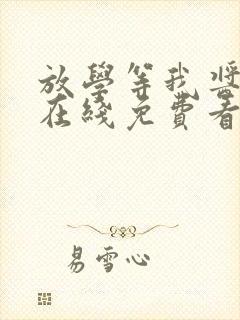 放學等我將
在綫免費看
易雪心